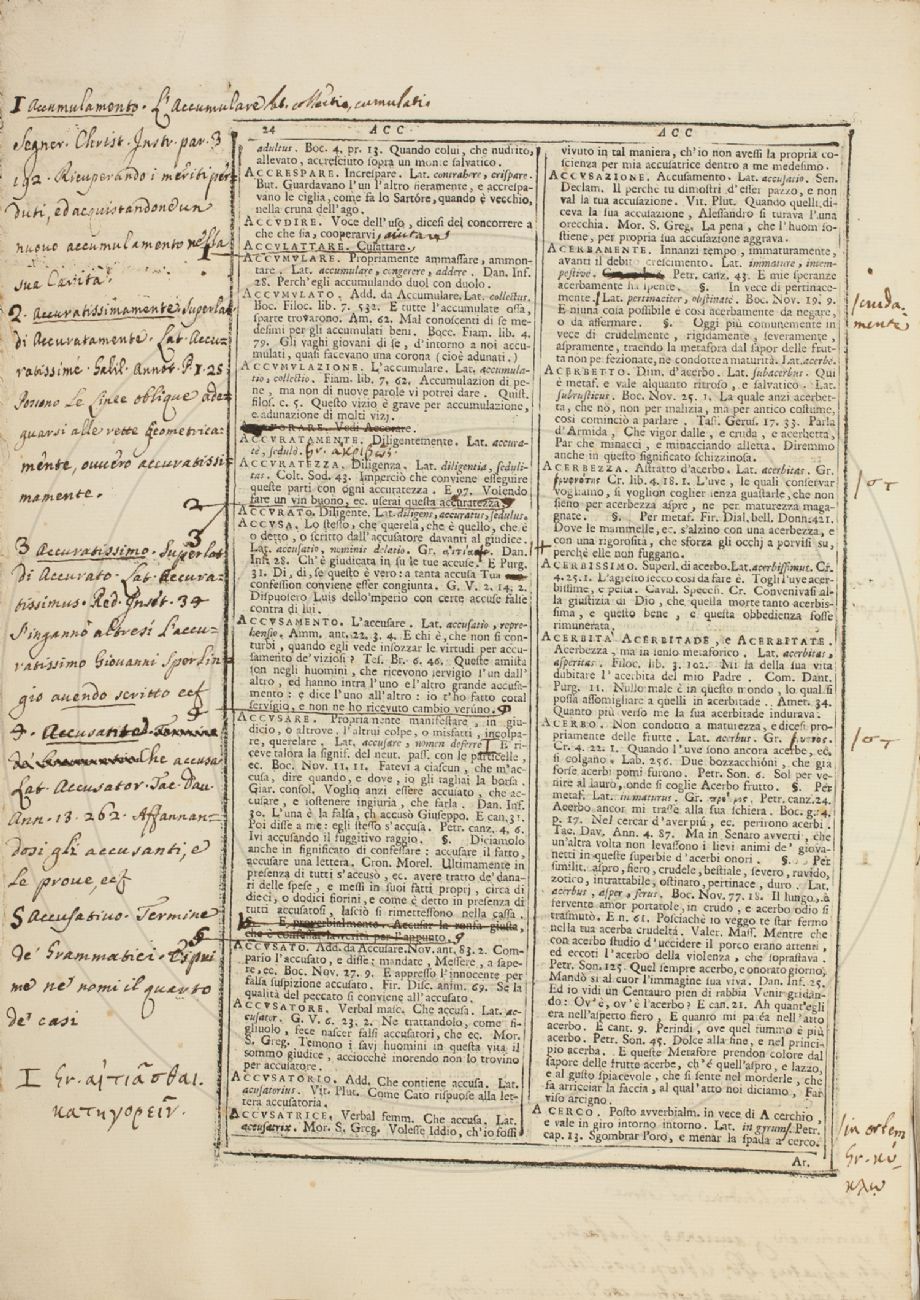 I Accumulamento. L'Accumulare lat. collectio, cumulatio
Segner. Christ. Instr. par. 3
192. Ricuperando i meriti per
duti, ed acquistandone un
nuovo accumulamento nella
sua Carità.
2. Accuratissimamente. Superlat
di Accuratamente. Lat. Accu-
ratissime. Galil. Annot. P. 1. 25
Possono le Linee oblique ade
guarsi alle rette Geometrica-
mente, ovvero accuratissi-
mamente.
2
3
3 Accuratissimo. Superlat
di Accurato. Lat. Accura-
tissimus. Red. Inset. 34
S'ingannò altresì l'accu-
ratissimo Giovanni Sperlin
gio avendo scritto ec
4
4. che accusa
Lat. Accusator. Tac. Dav.
Ann. 13. 262. Affannan-
dosi gli accusanti, e
le prove, ec
5 Accusativo. Termine
5
de' Grammatici. Espri
me ne' nomi il quarto
de' casi
I Gr. αἰτιᾶσθαι.
κατηγορεῖν.
24 ACC
adultus. Boc. 4. pr. 13. Quando colui, che nudrito,
allevato, accresciuto sopra un monte salvatico.
ACCRESPARE. Increspare. Lat. contrahere, crispare.
But. Guardavano l'un l'altro fieramente, e accrespa-
vano le ciglia, come fa lo Sartóre, quando è vecchio,
nella cruna dell'ago.
ACCVDIRE. Voce dell'uso, dicesi del concorrere a
che che sia, cooperarvi, aiutare
ACCVLATTARE. Culattare.
ACCVMVLARE. Propriamente ammassare, ammon-
tare. Lat. accumulare, congerere, addere. Dan. Inf.
28. Perch'egli accumulando duol con duolo.
ACCVMVLATO. Add. da Accumulare. Lat. collectus.
Boc. Filoc. lib. 7. 532. E tutte l'accumulate ossa,
sparte trovarono. Am. 62. Mal conoscenti di se me-
desimi per gli accumulati beni. Bocc. Fiam. lib. 4.
79. Gli vaghi giovani di se, d'intorno a noi accu-
mulati, quasi facevano una corona (cioè adunati.)
ACCVMVLAZIONE. L'accumulare. Lat. accumula-
tio, collectio. Fiam. lib. 7, 62. Accumulazion di pe-
ne, ma non di nuove parole vi potrei dare. Quist.
filos. c. 5. Questo vizio è grave per accumulazione,
e adunazione di molti vizj.
Vedi Accorare.
ACCVRATAMENTE. Diligentemente. Lat. accura-
tè, sedulò. Gr. ἀκριβῶς.
ACCVRATEZZA. Diligenza. Lat. diligentia, seduli-
tas. Colt. Sod. 43. Imperciò che conviene eseguire
queste parti con ogni accuratezza. E 97. Volendo
fare un vin buono, ec. userai questa accuratezza
ACCVRATO. Diligente. Lat. diligens, accuratus, sedulus.
ACCVSA. Lo stesso, che querela, che è quello, che è
o detto, o scritto dall'accusatore davanti al giudice.
Lat. accusatio, nominis delatio. Gr. Dan.
Inf. 28. Ch'è giudicata in su le tue accuse. E Purg.
31. Di, di, se questo è vero: a tanta accusa Tua
Confession conviene esser congiunta. G. V. 2. 14. 2.
Dispuosero Luis dello'mperio con certe accuse false
contra di lui.
ACCVSAMENTO. L'accusare. Lat. accusatio, repre-
hensio. Amm. ant. 22. 3. 4. E chi è, che non si con-
turbi, quando egli vede insozzar le virtudi per accu-
samento de' viziosi? Tes. Br. 6. 46. Queste amista
son negli huomini, che ricevono servigio l'un dall'
altro, ed hanno intra l'uno e l'altro grande accusa-
mento: e dice l'uno all'altro: io t'ho fatto cotal
servigio, e non ne ho ricevuto cambio verúno.
ACCVSARE. Propriamente manifestare, in giu-
dicio, o altrove, l'altrui colpe, o misfatti, incolpa-
re, querelare. Lat. accusare, nomen deferre I E ri-
ceve talora la signif. del neut. pass. con le particelle,
ec. Boc. Nov. 11. 11. Fatevi a ciascun, che m'ac-
cusa, dire quando, e dove, io gli tagliai la borsa.
Giar. consol. Voglio anzi essere accusato, che ac-
cusare, e sostenere ingiuria, che farla. Dan. Inf.
30. L'una è la falsa, ch accusò Giuseppo. E can. 31.
Poi disse a me: egli stesso s'accusa. Petr. canz. 4. 6.
Ivi accusando il fuggitivo raggio. §. Diciamolo
anche in significato di confessare: accusare il fatto,
accusare una lettera. Cron. Morel. Ultimamente in
presenza di tutti s'accusò, ec. avere tratto de' dana-
ri delle spese, e messi in suoi fatti proprj, circa di
dieci, o dodici fiorini, e come è detto in presenza di
tutti accusatosi, lasciò si rimettessono nella cassa.
§. E proverbialmente. Accusar la ronfa giusta,
che è confessar lo per l'appunto.
ACCVSATO. Add. da Accusare. Nov. ant. 83. 2. Com-
parío l'accusato, e disse: mandate, Messere, a sape-
re, ec. Boc. Nov. 27. 9. E appresso l'innocente per
falsa suspizione accusato. Fir. Disc. anim. 69. Se la
qualità del peccato si conviene all'accusato.
ACCVSATORE. Verbal masc. Che accusa. Lat. ac-
cusator. G. V. 6. 23. 2. Ne trattandolo, come fi-
gliuolo, fece nascer falsi accusatori, che ec. Mor.
S. Greg. Temono i savj huomini in questa vita il
sommo giudice, acciocchè morendo non lo trovino
per accusatore.
ACCVSATORIO. Add. Che contiene accusa. Lat.
acusatorius. Vit. Plut. Come Cato rispuose alla let-
tera accusatoria.
ACCVSATRICE. Verbal femm. Che accusa. Lat.
accusatrix. Mor. S. Greg. Volesse Iddio, ch'io fossi
ACC
vivuto in tal maniera, ch'io non avessi la propria co-
scienza per mia accusatrice dentro a me medesimo.
ACCVSAZIONE. Accusamento. Lat. accusatio. Sen.
Declam. Il perchè tu dimostri d'esser pazzo, e non
val la tua accusazione. Vit. Plut. Quando quelli di-
ceva la sua accusazione, Alessandro si turava l'una
orecchia. Mor. S. Greg. La pena, che l'huom so-
stiene, per propria sua accusazione aggrava.
ACERBAMENTE. Innanzi tempo, immaturamente,
avanti il debito crescimento. Lat. immature, intem-
pestive. Petr. canz. 43. E mie speranze
acerbamente ha spente. §. In vece di pertinace-
mente. Lat. pertinaciter, obstinatè. Boc. Nov. 19. 9.
E niuna cosa possibile è così acerbamente da negare,
o da affermare. §. Oggi più comunemente in
vece di crudelmente, rigidamente, severamente,
aspramente, traendo la metafora dal sapor delle frut-
ta non perfezionate, ne condotte a maturità. Lat. acerbe.
ACERBETTO. Dim. d'acerbo. Lat. subacerbus. Qui
è metaf. e vale alquanto ritroso, e salvatico. Lat.
subrusticus. Boc. Nov. 25. 1. La quale anzi acerbet-
ta, che nò, non per malizia, ma per antico costume,
così cominciò a parlare. Tass. Gerus. 17. 33. Parla
d'Armida, Che vigor dalle, e cruda, e acerbetta,
Par che minacci, e minacciando alletta. Diremmo
anche in questo significato schizzinosa.
ACERBEZZA. Astratto d'acerbo. Lat. acerbitas. Gr.
Cr. lib. 4. 18. 1. L'uve, le quali conservar
vogliamo, si voglion coglier senza guastarle, che non
sieno per acerbezza aspre, ne per maturezza maga-
gnate. §. Per metaf. Fir. Dial. bell. Donn. 421.
Dove le mammelle, ec. s'alzino con una acerbezza, e
con una rigorosità, che sforza gli occhj a porvisi su,
perchè elle non fuggano.
ACERBISSIMO. Superl. di acerbo. Lat. acerbissimus. Cr.
4. 25. 1. L'agresto secco così da fare è. Togli l'uve acer-
bissime, e pesta. Caval. Specch. Cr. Convenivasi al-
la giustizia di Dio, che quella morte tanto acerbis-
sima, e questo bene, e questa obbedienza fosse
rimunerata.
ACERBITÀ ACERBITADE, e ACERBITATE.
Acerbezza, ma in senso metaforico. Lat. acerbitas,
asperitas. Filoc. lib. 3. 102. Mi fa della sua vita
dubitare l'acerbità del mio Padre. Com. Dant.
Purg. 11. Nullo male è in questo mondo, lo qual si
possa assomigliare a quelli in acerbitade. Amet. 34.
Quanto più verso me la sua acerbitade indurava.
ACERBO. Non condotto a maturezza, e dicesi pro-
priamente delle frutte. Lat. acerbus. Gr.
Cr. 4. 22. 1. Quando l'uve sono ancora acerbe, ec.
si colgano. Lab. 256. Due bozzacchióni, che già
forse acerbi pomi furono. Petr. Son. 6. Sol per ve-
nire al lauro, onde si coglie Acerbo frutto. §. Per
metaf. Lat. immaturus. Gr. Petr. canz. 24.
Acerbo ancor mi trasse alla sua schiera. Boc. g. 4.
p. 17. Nel cercar d'aver più, ec. perirono acerbi.
Tac. Dav. Ann. 4. 87. Ma in Senaro avvertì, che
un'altra volta non levassono i lievi animi de' giova-
netti in queste superbie d'acerbi onori. §. Per
similit. aspro, fiero, crudele, bestiale, severo, ruvido,
zotico, intrattabile, ostinato, pertinace, duro. Lat.
acerbus, asper, ferus. Boc. Nov. 77. 18. Il lungo, e
fervente amor portatole, in crudo, e acerbo odio si
trasmutò. E n. 61. Posciachè io veggo te star fermo
nella tua acerba crudeltà. Valer. Mass. Mentre che
con acerbo studio d'uccidere il porco erano attenti,
ed eccoti l'acerbo della violenza, che soprastava.
Petr. Son. 125. Quel sempre acerbo, e onorato giorno,
Mandò sì al cuor l'immagine sua viva. Dan. Inf. 25.
Ed io vidi un Centauro pien di rabbia Venir gridán-
do: Ov'è, ov'è l'acerbo? E can. 21. Ah quant'egli
era nell'aspetto fiero, E quanto mi parea nell'atto
acerbo. E cant. 9. Perindi, ove quel fummo è più
acerbo. Petr. Son. 45. Dolce alla fine, e nel princi-
pio acerba. E queste Metafore prendon colore dal
sapore delle frutte acerbe, ch'è quell'aspro, e lazzo,
e al gusto spiacevole, che si sente nel morderle, che
fa arricciar la faccia, al qual'atto noi diciamo, Far
viso arcigno.
A CERCO. Posto avverbialm. in vece di A cerchio,
e vale in giro intorno intorno. Lat. in gyrum. Petr.
cap. 13. Sgombrar Poro, e menar la spada a cerco.
Ar.
/cruda-
mente
in orbem
Gr. κύ-
κλῳ